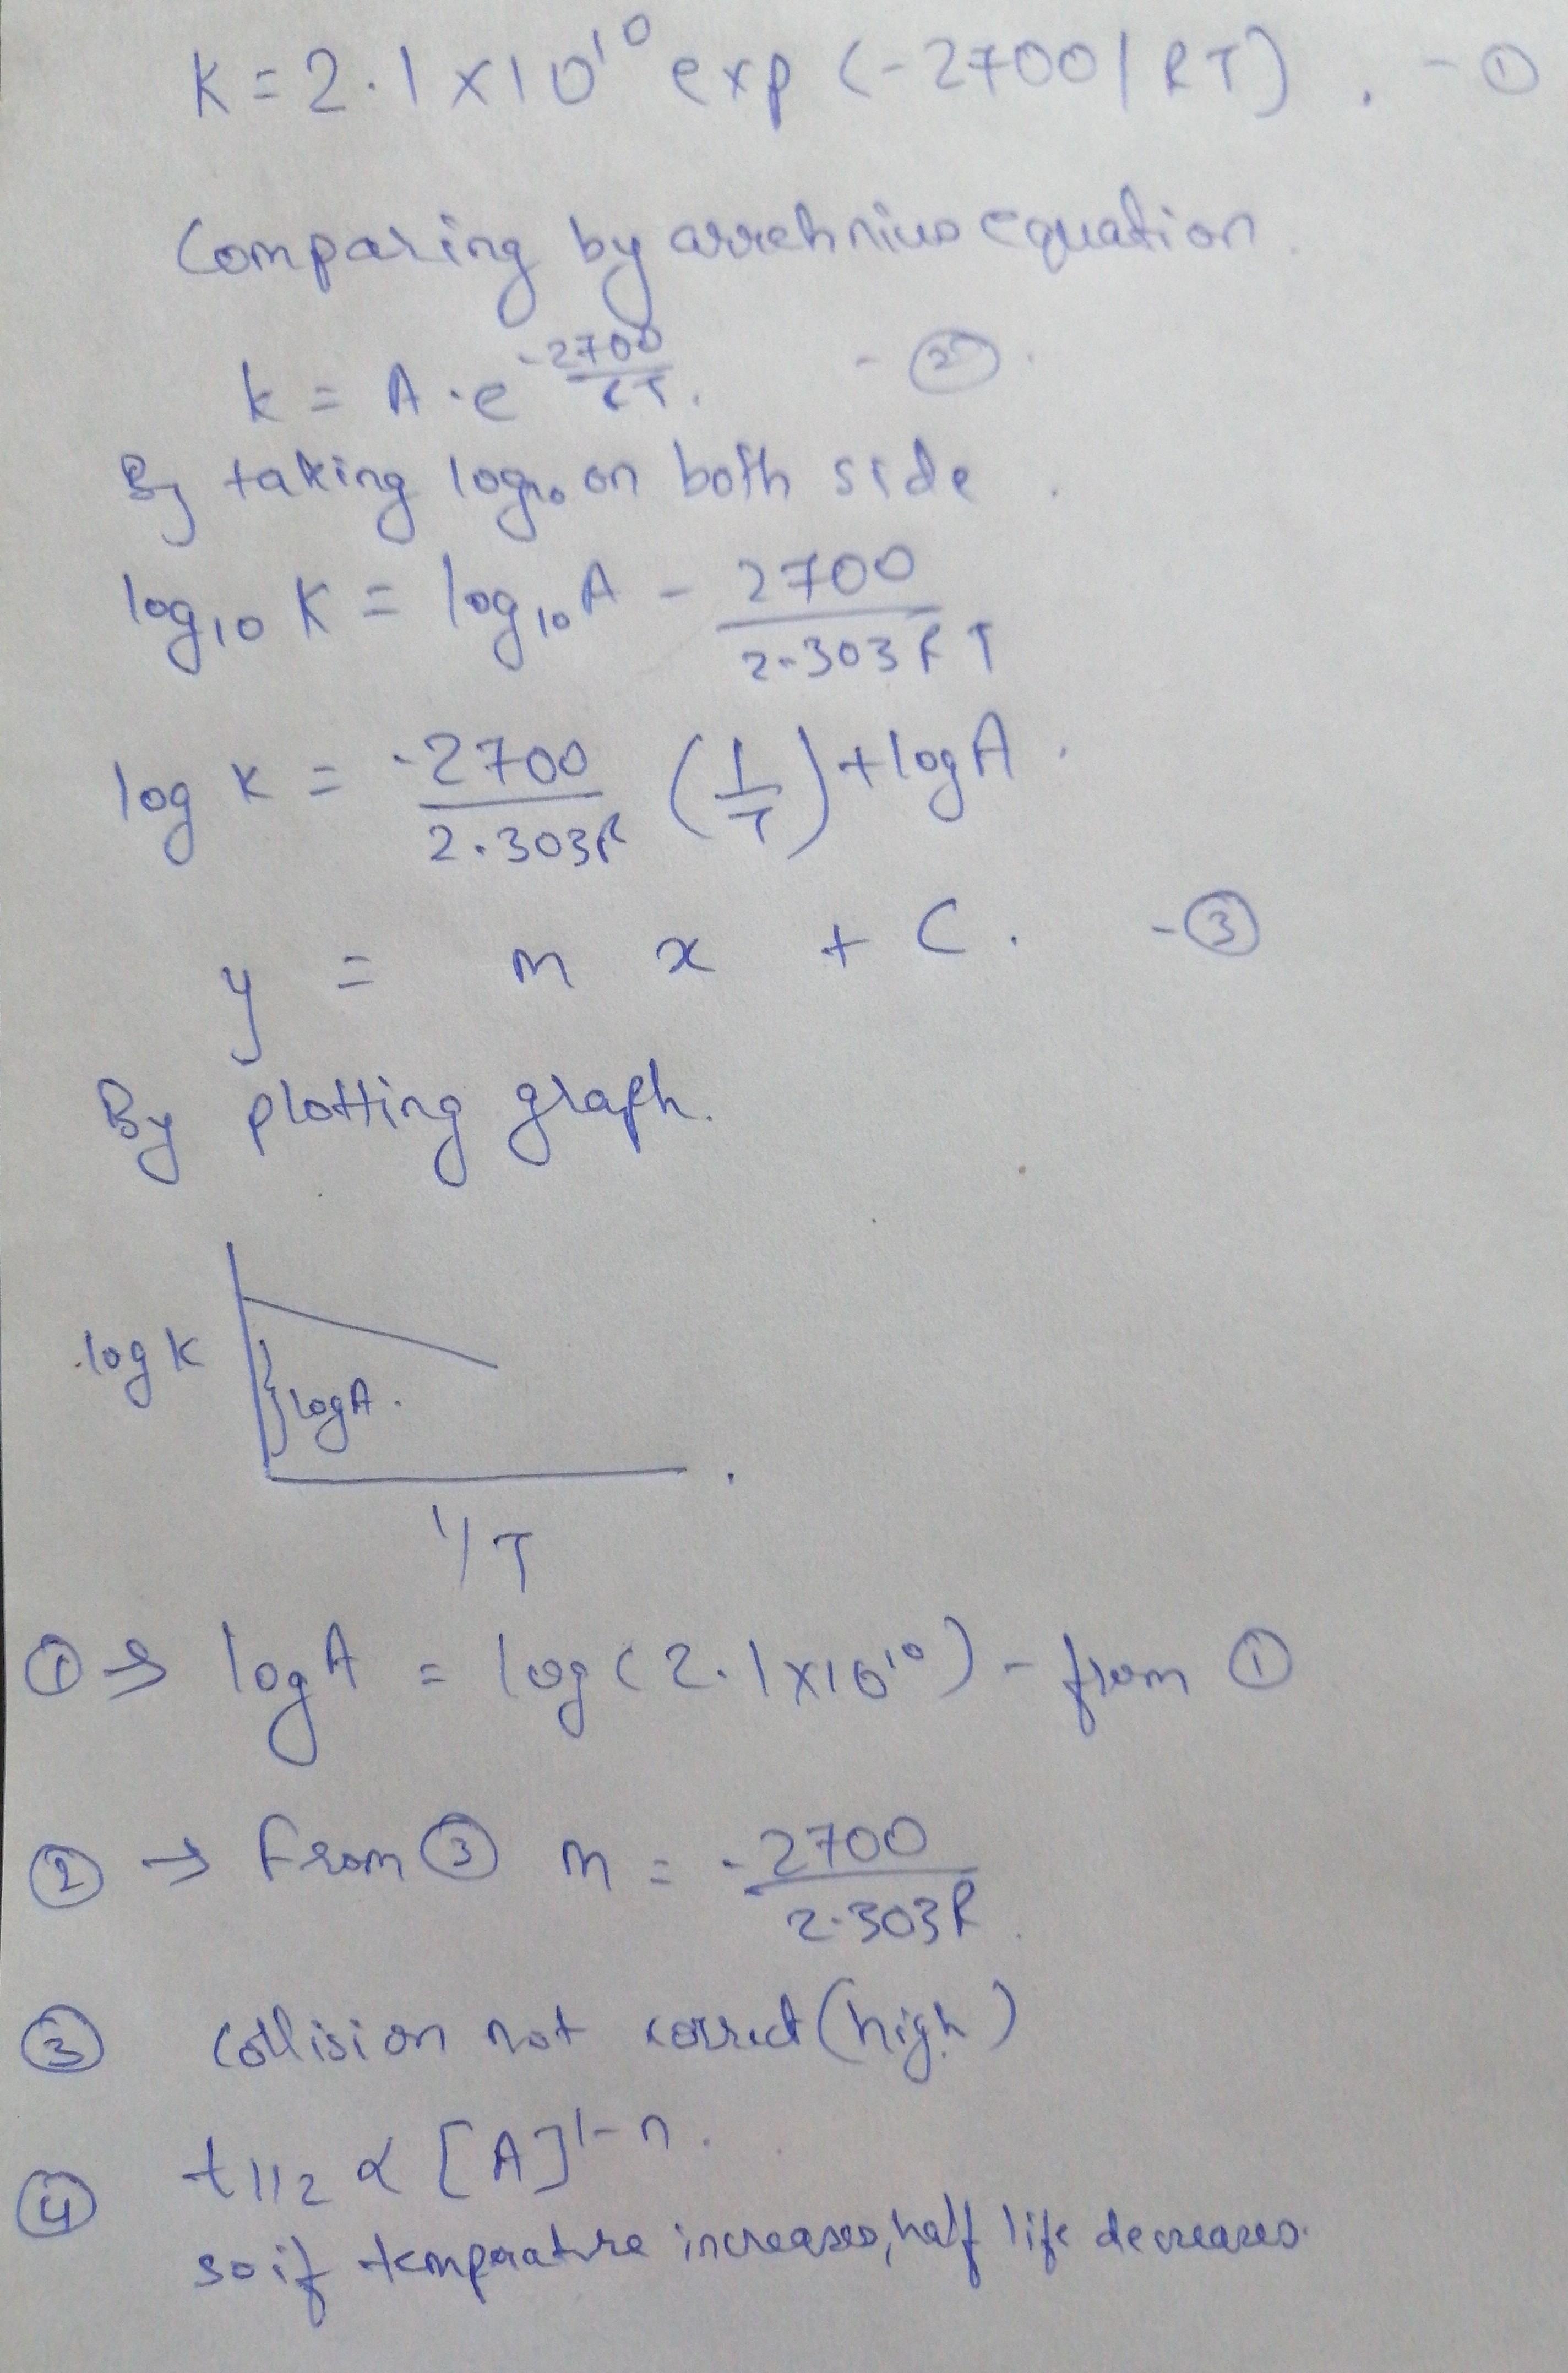 K = 2.1 × 10¹⁰ exp (-2700 / RT) . - ①
Comparing by arrehnius equation.
k = A · e^(-2700/RT) . - ② .
By taking log₁₀ on both side .
log₁₀ K = log₁₀ A - 2700 / 2.303 R T
log K = -2700 / 2.303R (1/T) + log A .
y = m x + C . - ③
By plotting graph.
log K
log A .
1/T
① → log A = log (2.1×10¹⁰) - from ①
② → From ③ m = -2700 / 2.303R .
③ collision not correct (high)
④ t1/2 α [A]¹⁻ⁿ .
so if temperature increases, half life decreases.